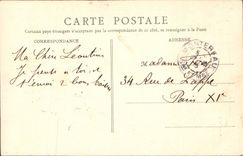 CARTE POSTALE
Certains pays étrangers n'acceptent pas la correspondance de ce côté, se renseigner à la Poste
CORRESPONDANCE
ADRESSE
Ma Chère Léontine
Je pense a toi et
t'envoi 2 bons baisers
Madame
34 Rue de Lappe
Paris XIe